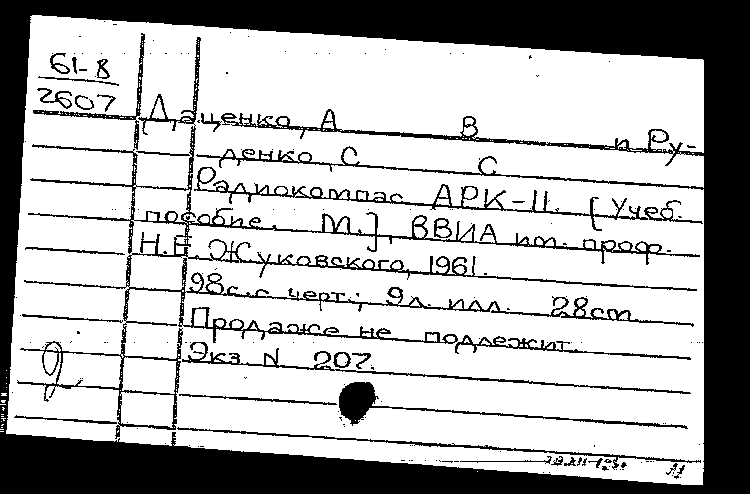 61-8
2607
Даценко, А В и Ру-
денко, С С
Радиокомпас АРК-11. [Учеб.
пособие. М.], ВВИА им. проф.
Н.Е. Жуковского, 1961.
98с. с черт.; 9л. илл. 28см
Продаже не подлежит.
Экз. N 207.